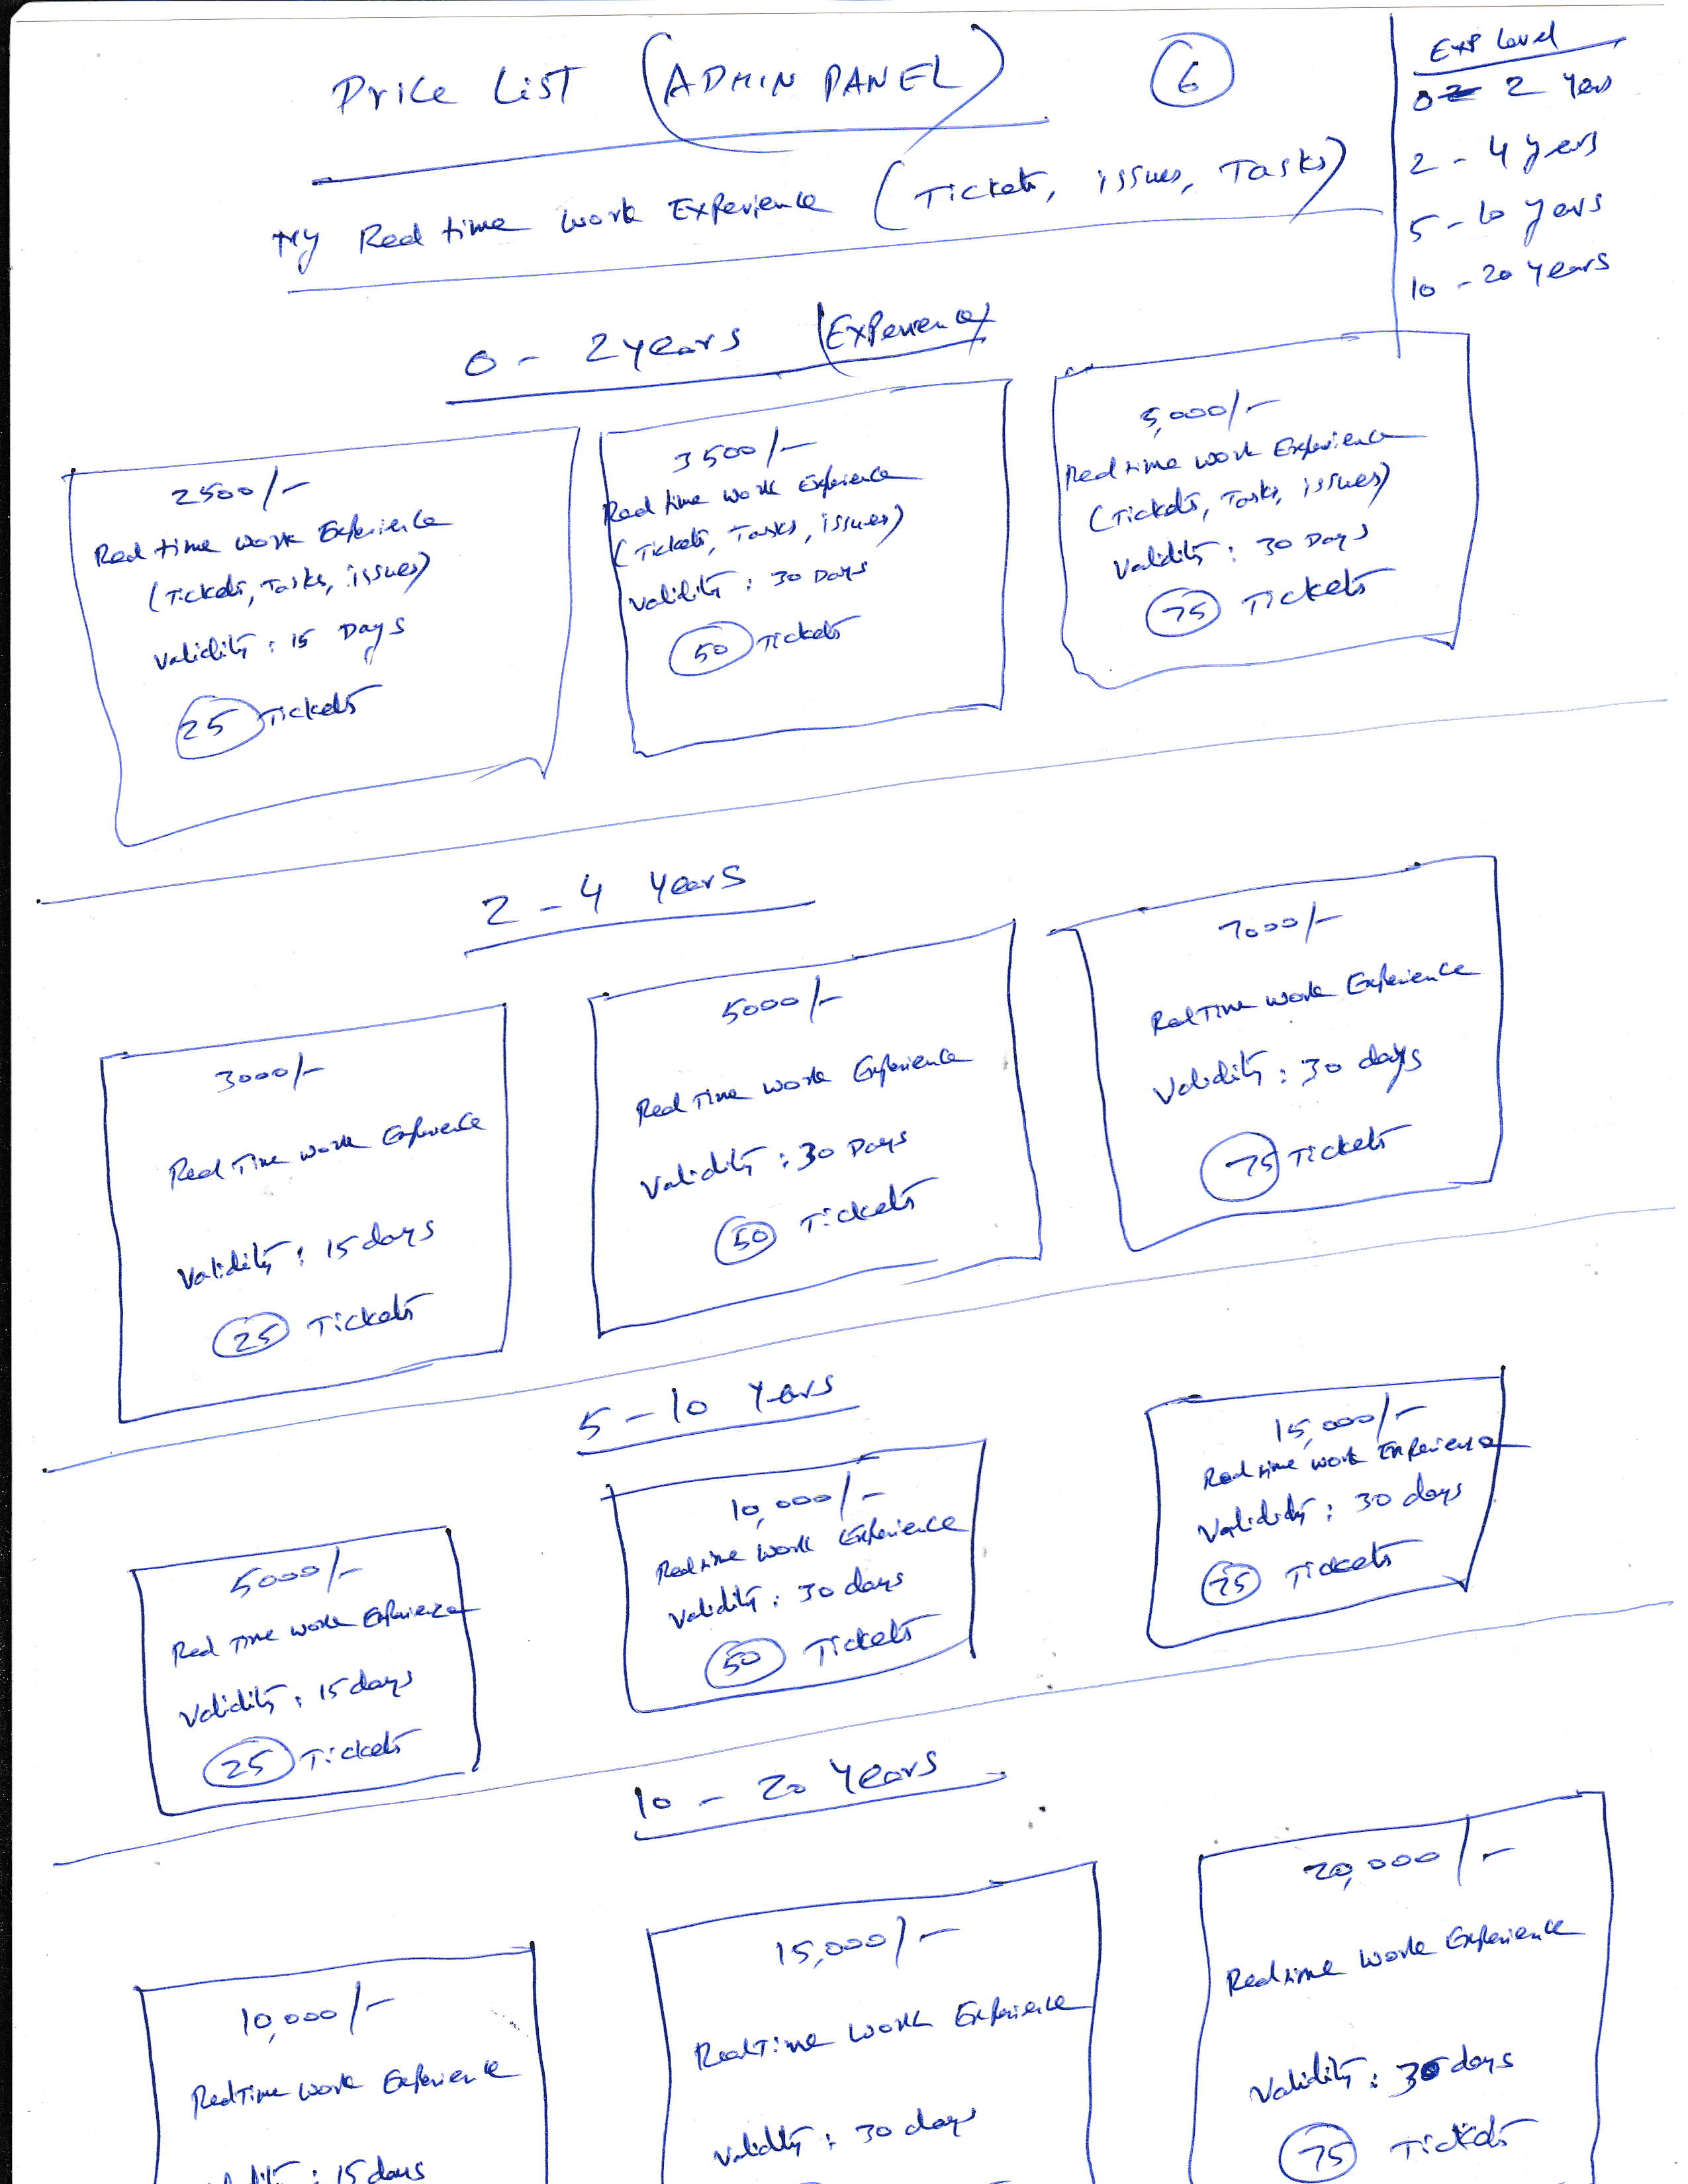 Price List (ADMIN PANEL)
6
Exp Level
0 - 2 Years
2 - 4 years
5 - 10 years
10 - 20 years
My Real time work Experience (Tickets, issues, Tasks)
0 - 2 years (Experience)
2500/-
Real time work Experience
(Tickets, Tasks, issues)
Validity : 15 Days
25 Tickets
3500/-
Real time work Experience
(Tickets, Tasks, issues)
Validity : 30 Days
50 Tickets
5,000/-
Real time work Experience
(Tickets, Tasks, issues)
Validity : 30 Days
75 Tickets
2 - 4 Years
3000/-
Real Time work Experience
Validity : 15 days
25 Tickets
5000/-
Real Time work Experience
Validity : 30 Days
50 Tickets
7000/-
Real Time work Experience
Validity : 30 days
75 Tickets
5 - 10 Years
5000/-
Real Time work Experience
Validity : 15 days
25 Tickets
10,000/-
Real time work Experience
Validity : 30 days
50 Tickets
15,000/-
Real time work Experience
Validity : 30 days
75 Tickets
10 - 20 Years
10,000/-
Real Time work Experience
Validity : 15 days
15,000/-
Real Time work Experience
Validity : 30 days
20,000/-
Real time work Experience
Validity : 30 days
75 Tickets